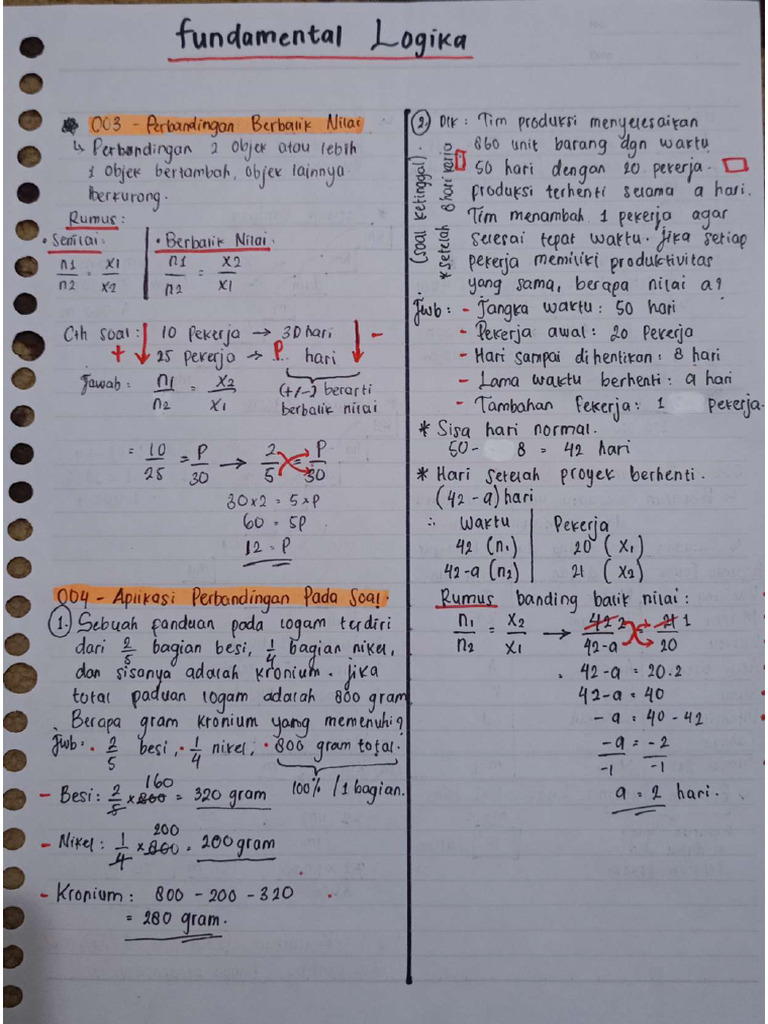 fundamental Logika
003 - Perbandingan Berbalik Nilai
↳ Perbandingan 2 objek atau lebih
1 objek bertambah, objek lainnya
berkurang.
Rumus:
• Senilai:
n1/n2 = x1/x2
• Berbalik Nilai:
n1/n2 = x2/x1
Cth soal: 10 Pekerja → 30 hari -
+ 25 pekerja → P.. hari
Jawab: n1/n2 = x2/x1
(+/-) berarti
berbalik nilai
= 10/25 = P/30 → 2/5 = P/30
30x2 = 5xP
60 = 5P
12 = P
004 - Aplikasi Perbandingan Pada Soal.
1. Sebuah panduan pada logam terdiri
dari 2/5 bagian besi, 1/4 bagian nikel,
dan sisanya adalah kronium. jika
total paduan logam adalah 800 gram
Berapa gram kronium yang memenuhi?
Jwb: • 2/5 besi, • 1/4 nikel, • 800 gram total.
100% / 1 bagian.
- Besi: 2/5 x 800 160 = 320 gram
- Nikel: 1/4 x 800 200 = 200 gram
- Kronium: 800 - 200 - 320
= 280 gram.
2 Dik: Tim produksi menyelesaikan
860 unit barang dgn waktu
50 hari dengan 20 pekerja.
produksi terhenti selama a hari.
Tim menambah 1 pekerja agar
selesai tepat waktu. jika setiap
pekerja memiliki produktivitas
yang sama, berapa nilai a?
(soal ketinggal).
* setelah 8 hari kerja
Jwb: - Jangka waktu: 50 hari
- Pekerja awal: 20 Pekerja
- Hari sampai dihentikan: 8 hari
- Lama waktu berhenti: a hari
- Tambahan Pekerja: 1 Pekerja.
* Sisa hari normal.
50 - 8 = 42 hari
* Hari setelah proyek berhenti.
(42 - a) hari
∴ Waktu | Pekerja
42 (n1) | 20 (x1)
42-a (n2) | 21 (x2)
Rumus banding balik nilai:
n1/n2 = x2/x1 → 42 2/42-a = 21 1/20
42-a = 20.2
42-a = 40
-a = 40-42
-a/-1 = -2/-1
a = 2 hari.